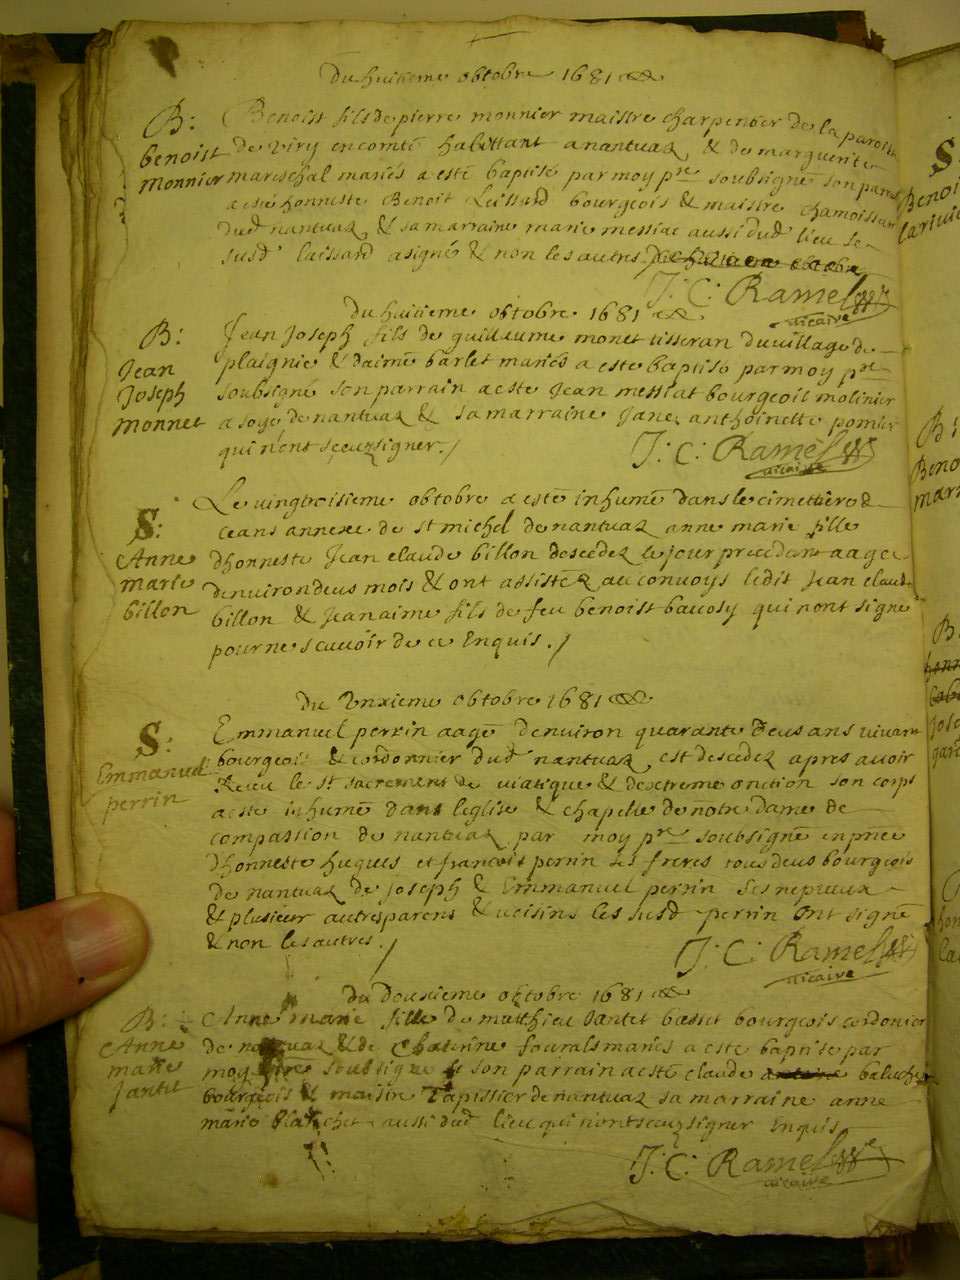 Du huitieme obtobre 1681
B: benoist monnier
Benoist fils de pierre monnier maistre charpentier de la paroisse
de viry en comté habittant a nantuaz & de marguerite
mareschal mariés a esté baptisé par moy pre soubsigné son parrain
a esté honneste Benoit Leissard bourgeois & maistre chamoissar
dud nantuaz & sa marraine marie messiat aussi dud lieu le
susd laissard a signé & non les autres
J: C: Ramel vicaire
du huitieme obtobre 1681
B: Jean Joseph monnet
Jean Joseph fils de guillaume monet tisseran du village de
plaignie & daimé barlet mariés a esté baptisé par moy pre
soubsigné son parrain a esté Jean messiat bourgeois molinier
a soye de nantuaz & sa marraine Jane anthoinette pomier
qui nont sceuz signer.
J: C: Ramel vicaire
S: Anne marie billon
Le vingtroisieme obtobre a esté inhumé dans le cimettiere de
ceans annexe de st michel de nantuaz anne marie fille
dhonneste Jean claude billon descedez le jour precedent aagé
denviron deus mois & ont assistez au convoys ledit Jean claude
billon & Jean aimé fils de feu benoist bavosy qui nont signé
pour ne scavoir de ce Enquis.
du Unxieme obtobre 1681
S: Emmanuel perrin
Emmanuel perrin aagé denviron quarante deus ans vivant
bourgeois & cordonnier dud nantuaz est descedez apres avoir
Receu le st sacrement de viatique & dextreme onction son corps
a esté inhumé dans leglise & chapelle de notre dame de
compassion de nantuaz par moy pre soubsigné en pnce
dhonneste hugues et françois perrin ses freres tous deus bourgeois
de nantuaz de Joseph & Emmanuel perrin ses nepveux
& plusieur autres parens & voisins les susd perrin ont signé
& non les autres.
J: C: Ramel vicaire
du Douxieme obtobre 1681
B: Anne marie Jantet
Anne marie fille de matthieu Jantet bourgeois cordonier
de nantuaz & de Chaterine mariés a esté baptisé par
moy pre soubsigné & son parrain a esté claude
bourgeois & maistre Tapissier de nantuaz sa marraine anne
marie aussi dud lieu qui nont sceuz signer Enquis
J: C: Ramel vicaire